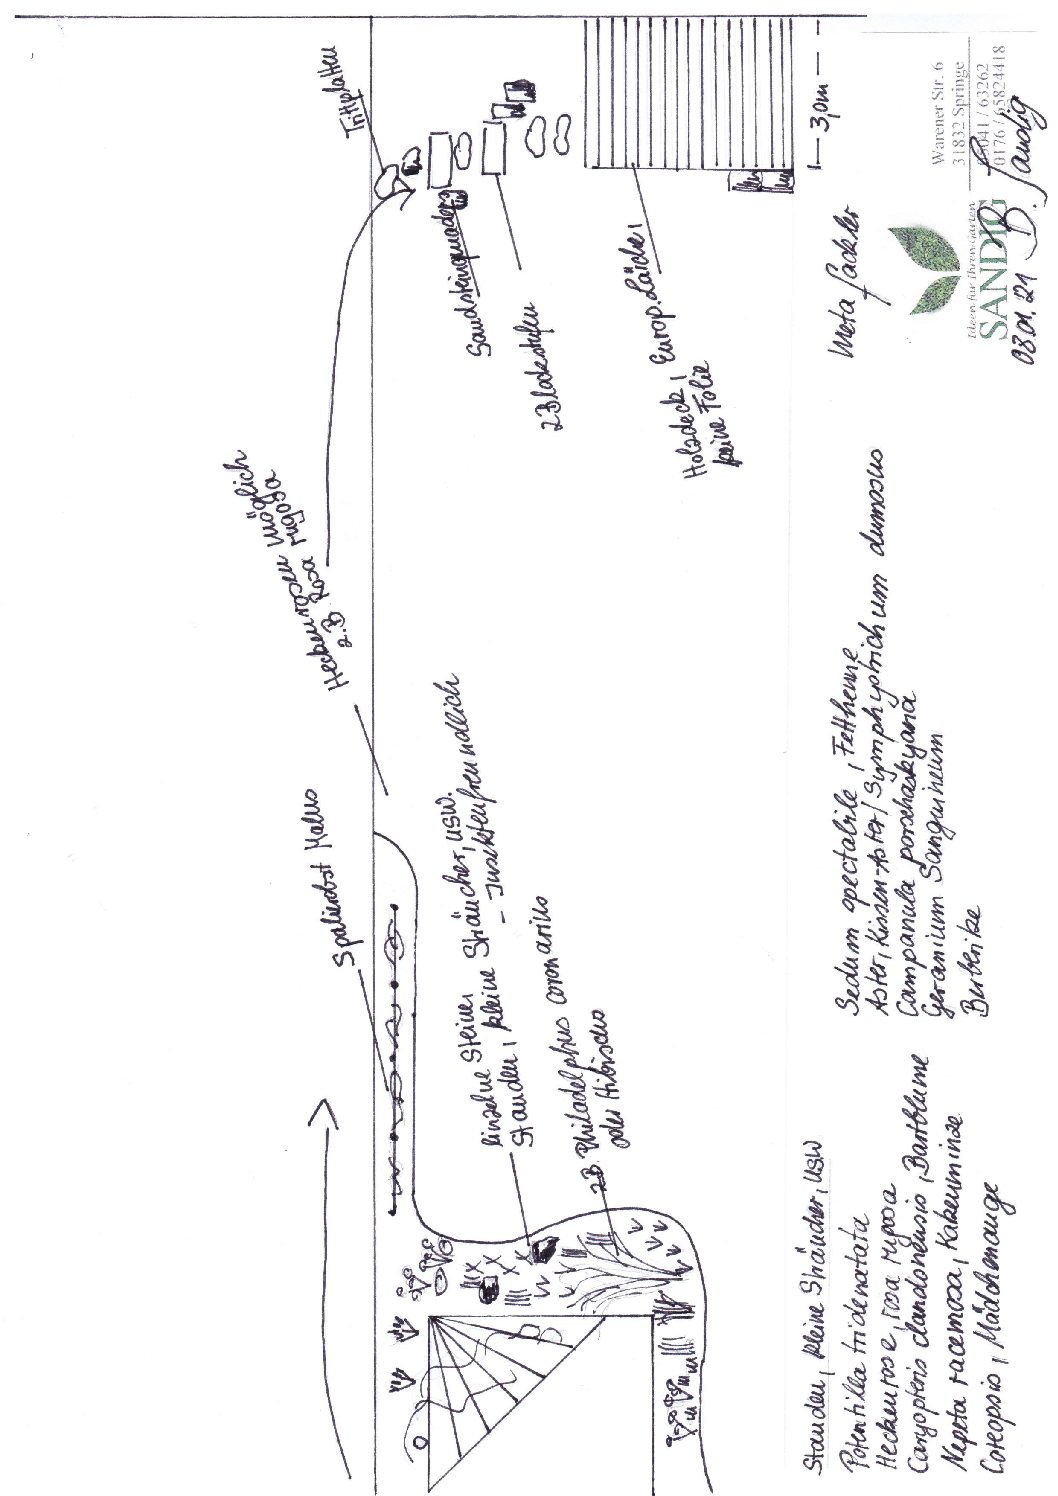 Trittplatten
Sandsteinquader
2 Blockstufen
Holzdeck, Europ. Lärche,
keine Folie
3,0m
Heckenrosen möglich
z.B Rosa rugosa
Spalierobst Malus
einzelne Steine,
Stauden, kleine Sträucher, usw.
- Insektenfreundlich
z.B. Philadelphus coronarius
oder Hibiscus
Stauden, kleine Sträucher, usw
Potentilla tridenatata
Heckenrose, rosa rugosa
Caryopteris clandonensis, Bartblume
Nepeta racemosa, Katzenminze
Coreopsis, Mädchenauge
Sedum spectabile, Fetthenne
Aster, Kissen-Aster/Symphyotrichum dumosus
Campanula porschaskyana
Geranium Sanguineum
Berberitze
Meta Sackler
Ideen für Ihren Garten
SANDIG
Warener Str. 6
31832 Springe
05041 / 63262
0176 / 65824418
03.01.21 B. Sandig